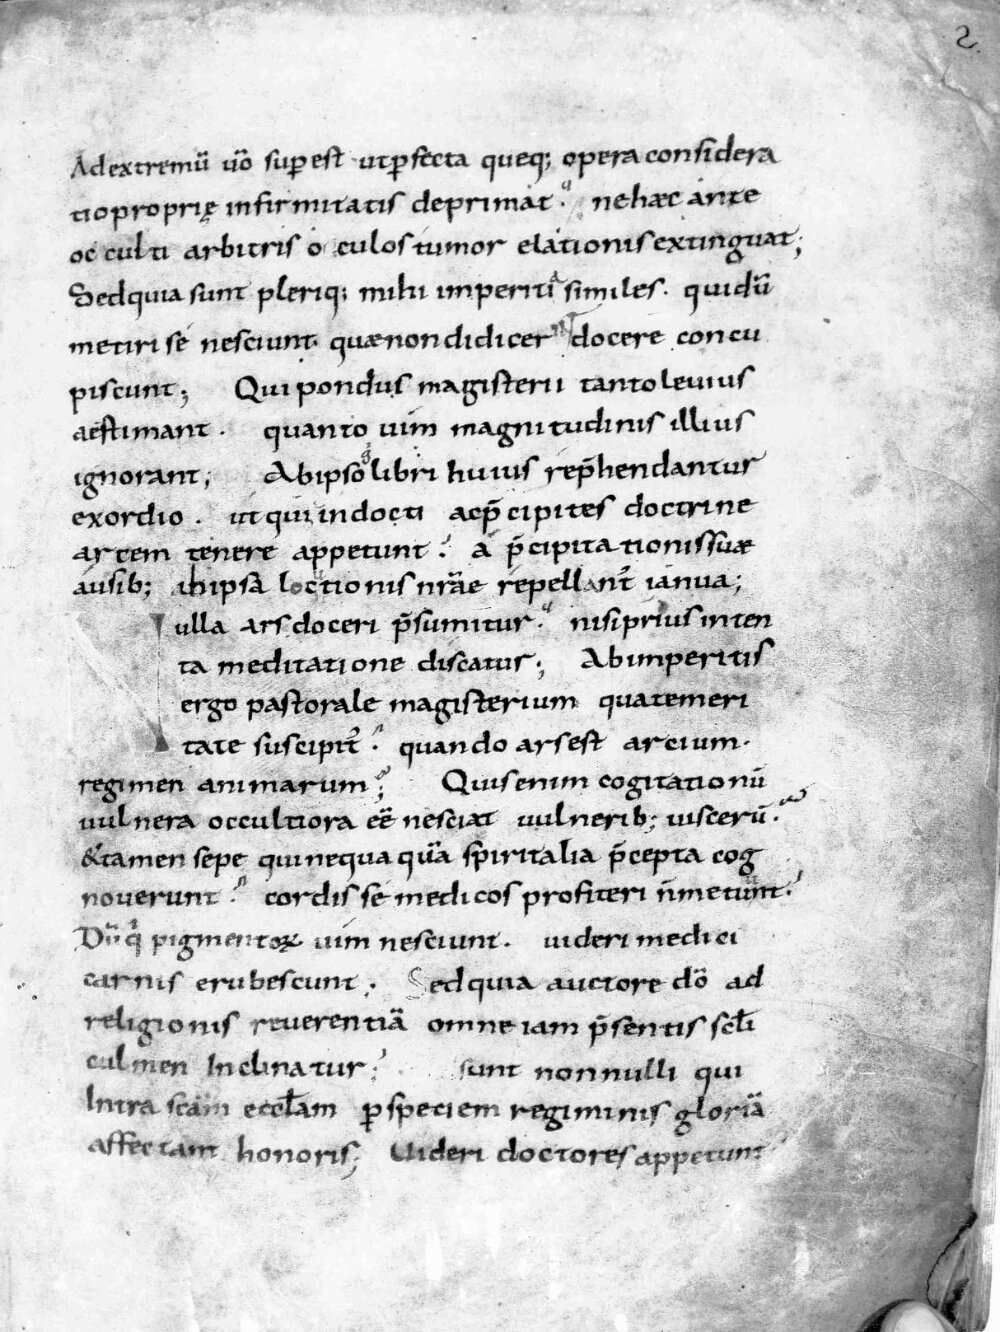 2.
Adextremū ūo sup̄est utp̄fecta queq; opera considera
tiopropriȩ infirmitatis deprimat. nehæc ante
occulti arbitris oculostumor elationisextinguat;
Sedquia sunt pleriq; mihi imperitia similes. quidū
metiri se nesciunt. quænondidicerunt docere concu
piscunt; Qui pondus magisterii tantoleuius
aestimant. quanto uim magnitudinis illius
ignorant; Abipso libri huius rep̄hendantur
exordio. ut quiindocti acp̄cipites doctrine
artem tenere appetunt. a p̄cipitationissuæ
ausib; inipsa loctionis nr̄ae repellant ianua;
ulla arsdoceri p̄sumitur. nisiprius inten
ta meditatione discatur; Abimperitis
ergo pastorale magisterium quatemeri
tate suscipit̄. quando arsest artium.
regimen animarum; Quisenim cogitationū
uulnera occultiora eē nesciat uulnerib; uiscerū.
&tamen sepe quinequaquā spiritalia p̄cepta cog
nouerunt. cordis se medicos profiteri n̄metuunt.
Dū q̄ pigmentoꝝ uim nesciunt. uideri medici
carnis erubescunt; Sedquia auctore dō ad
religionis reuerentiā omne iam p̄sentis scl̄i
culmen Inclinatur; sunt nonnulli qui
Intra scām eccl̄am p̄ speciem regiminis gloriā
affectant honoris; Uideri doctores appetunt